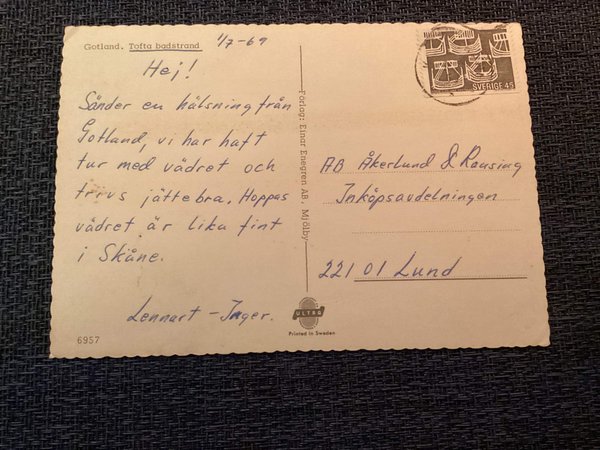 Gotland. Tofta badstrand
1/7-69
Hej!
Sänder en hälsning från
Gotland, vi har haft
tur med vädret och
trivs jättebra. Hoppas
vädret är lika fint
i Skåne.
Lennart - Inger.
6957
Förlag: Einar Enegren AB, Mjölby
ULTRA
Printed in Sweden
SVERIGE 45
AB Åkerlund & Rausing
Inköpsavdelningen
221 01 Lund